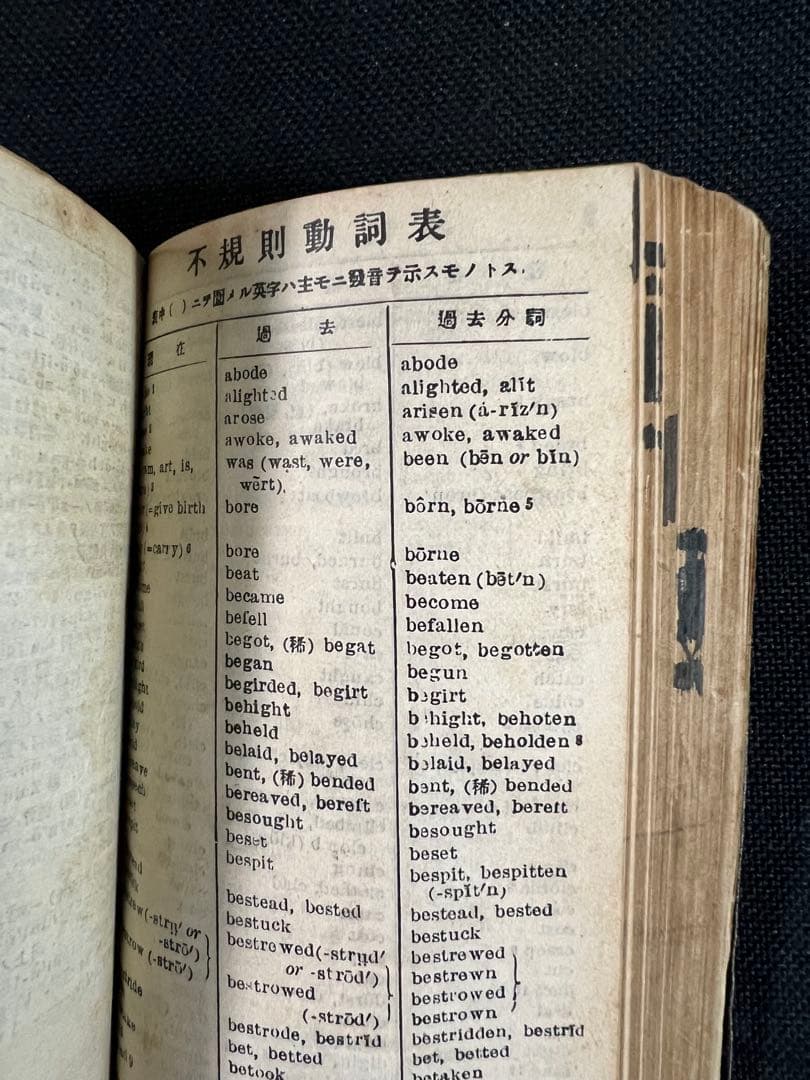 不規則動詞表
表中( )ニヲ圍メル英字ハ主モニ發音ヲ示スモノトス.
現在 過去 過去分詞
abode abode
alighted alighted, alĭt
arose arisen (á-rĭz′n)
awoke, awaked awoke, awaked
am, art, is, was (wạst, were, been (bēn or bĭn)
wẽrt).
(=give birth bore bôrn, bōrne 5
(=carry) 6 bore bōrne
beat beaten (bēt′n)
became become
befell befallen
begot, (稀) begat begot, begotten
began begun
begirded, begirt begirt
behight behight, behoten
beheld beheld, beholden 8
belaid, belayed belaid, belayed
bent, (稀) bended bent, (稀) bended
bereaved, bereft bereaved, bereft
besought besought
beset beset
bespit bespit, bespitten
(-spĭt′n)
bestead, bested bestead, bested
bestuck bestuck
(-strụ′ or bestrewed(-strụd′ bestrewed
-strō′) or -strōd′) bestrewn
(-strō′) bestrowed bestrowed
(-strōd′) bestrown
bestrode, bestrĭd bestridden, bestrĭd
bet, betted bet, betted
betook betaken